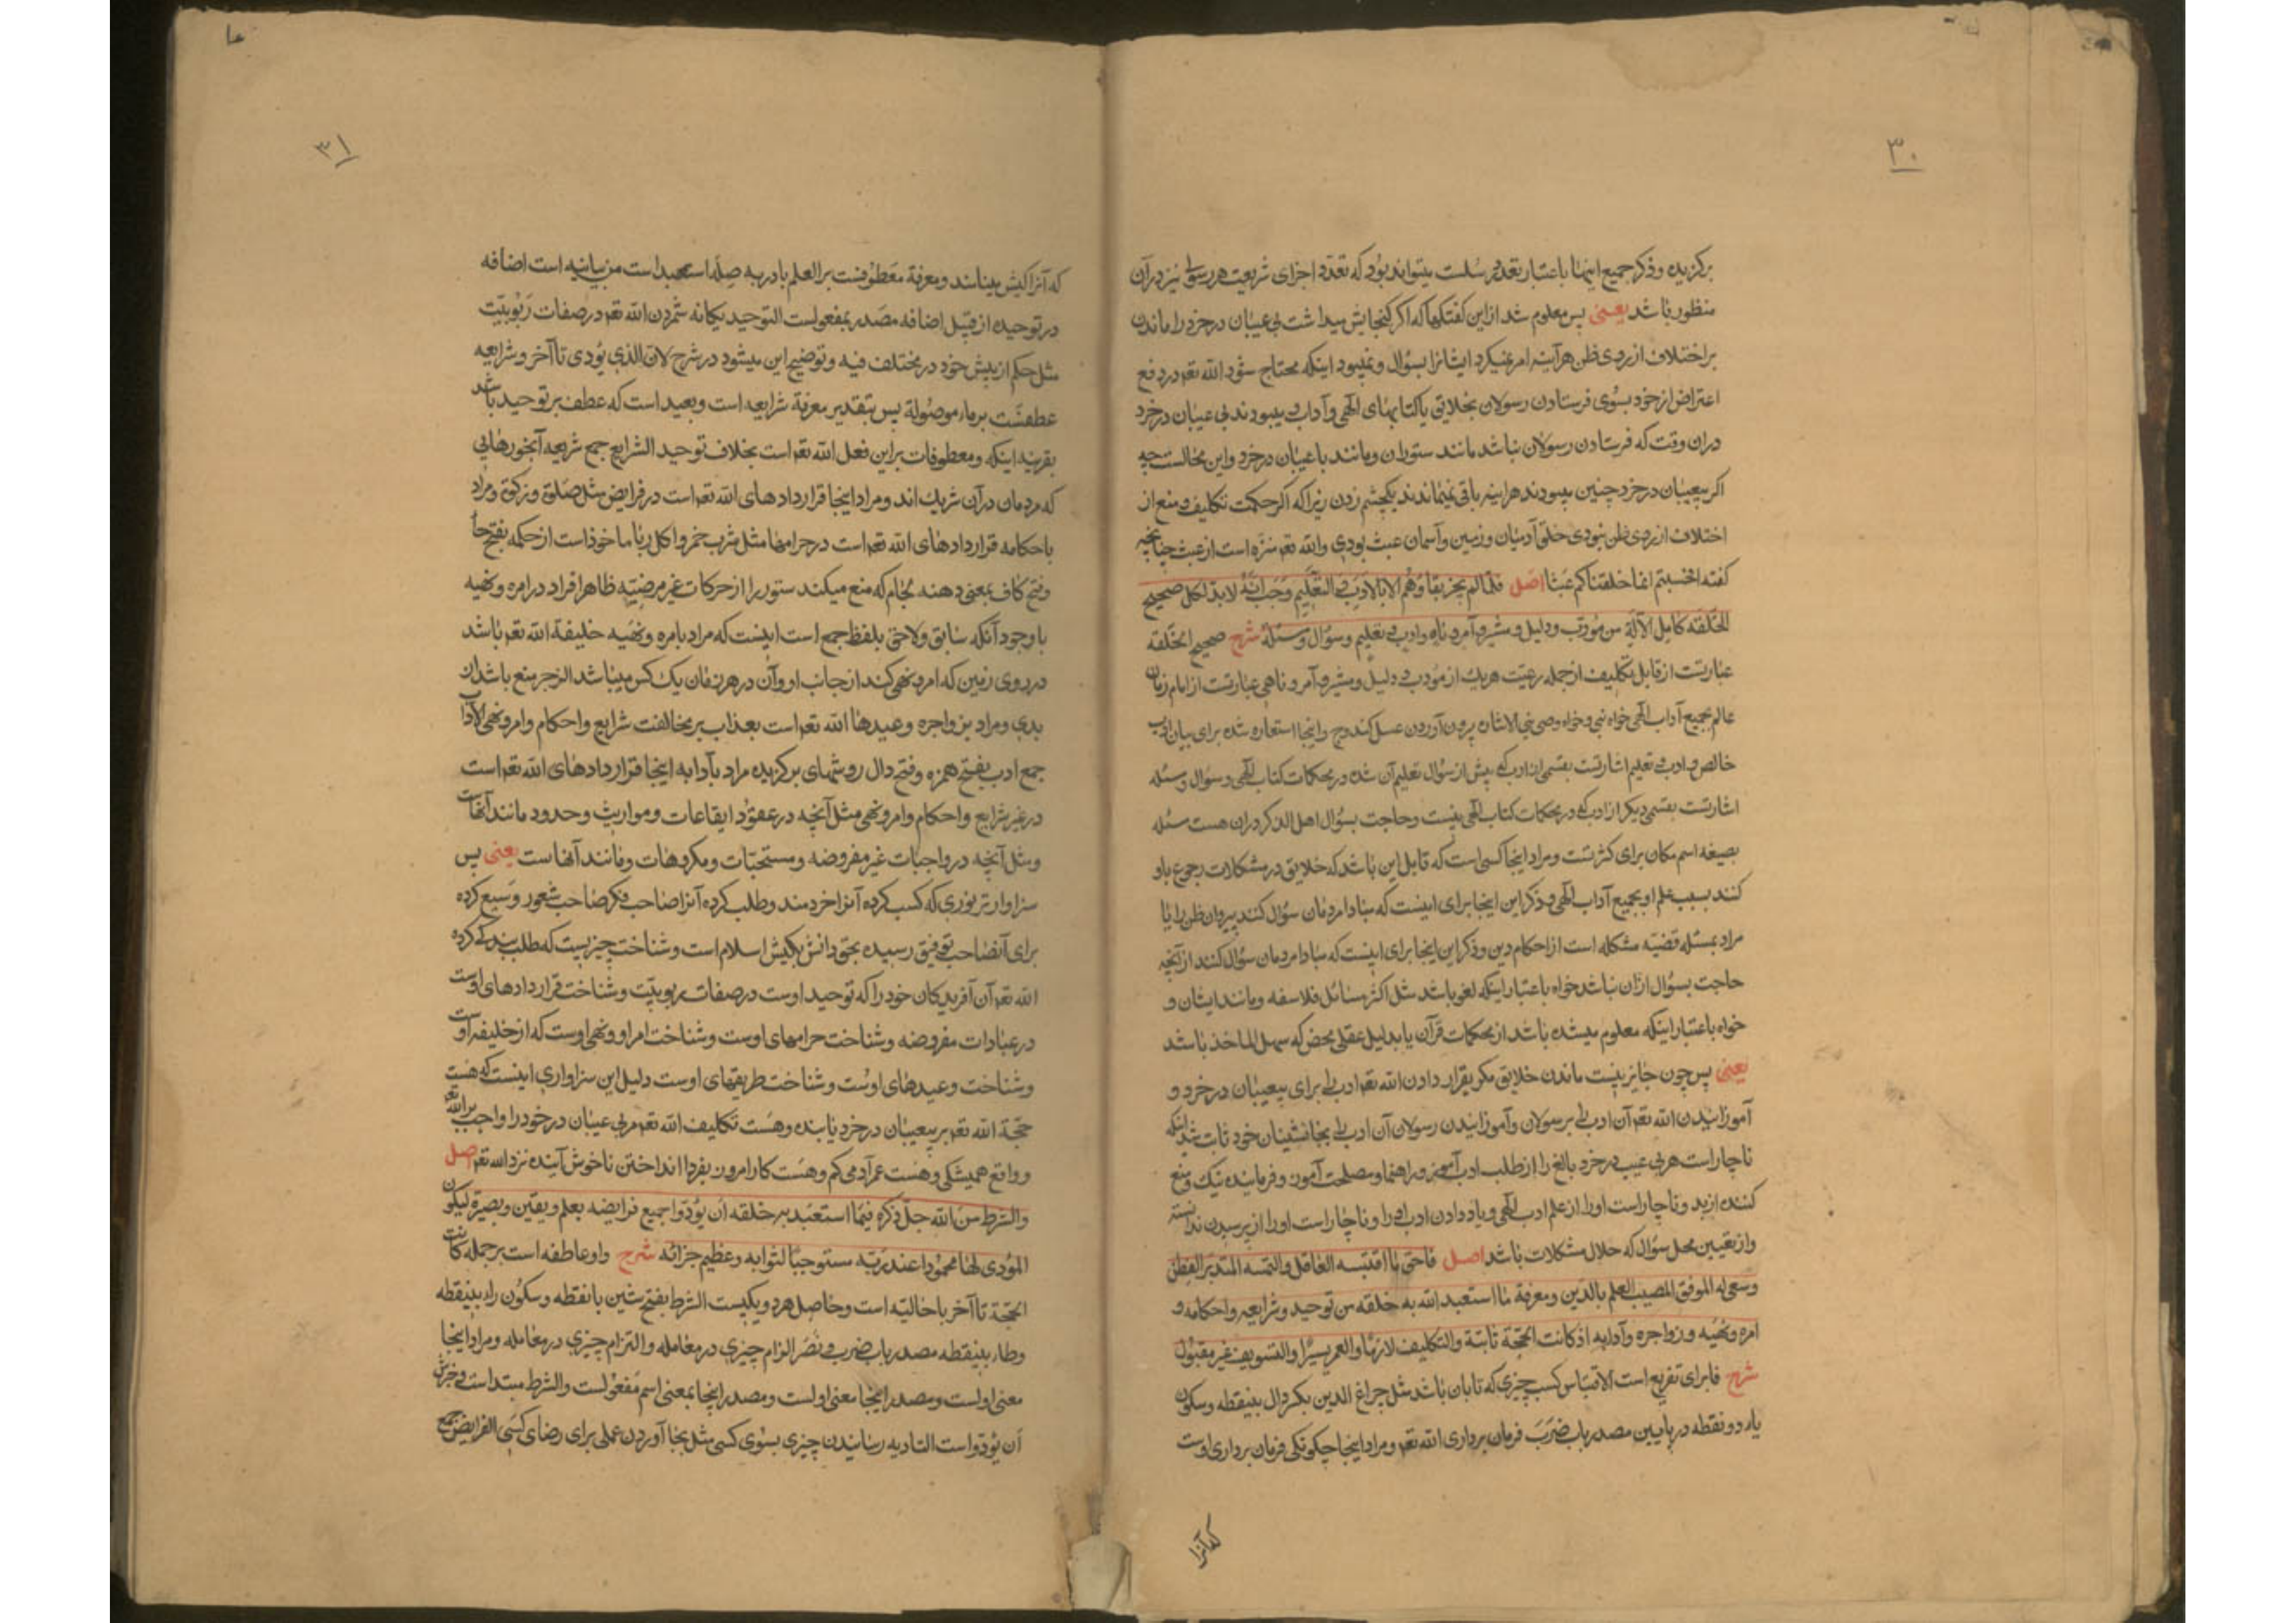 ۳۰
برکزیده و ذکر جمیع اینها باعتبار تعدد رسلست میتواند بود که تعدد اجزای شریعت هر رسولی نیز دران
منظور باشد یعنی پس معلوم شد از این کفتکوها که اکر کنجایش میداشت بی عیبان در خرد را ماندن
بر اختلاف از روی ظن هرآینه امر نمیکرد ایشانرا بسؤال و نمیبود اینکه محتاج شود الله تعم در دفع
اعتراض از خود بسوی فرستادن رسولان بخلایق با کتابهای الهی و آداب و میبودند بی عیبان در خرد
دران وقت که فرستادن رسولان نباشد مانند ستوران و مانند باعیبان در خرد و این محالست چه
اکر بیعیبان در خرد چنین میبودند هراینه باقی نمیماندند یکچشم زدن زیرا که اکر حکمت تکلیف و منع از
اختلاف از روی ظن نبودی خلق آدمیان و زمین و آسمان عبث بودی و الله تعم منزه است از عبث چنانچه
کفته افحسبتم انما خلقناکم عبثا اصل فلما لم یجز بقاؤهم الا بالادب و التعلیم وجب انه لابد لکل صحیح
الخلقة کامل الآلة من مؤدب و دلیل و مشیر و آمر و ناه و ادب و تعلیم و سؤال و مسئلة شرح صحیح الخلقه
عبارتست از قابل تکلیف از جمله رعیت هر یک از مؤدب و دلیل و مشیر و آمر و ناهی عبارتست از امام زمان
عالم بجمیع آداب الهی خواه نبی و خواه وصی نبی الاشاره بیرون آوردن عسل کندوج و اینجا استعاره شده برای بیان ادب
خالص و ادب و تعلیم اشارتست بقسمی از ادب که پیش از سؤال تعلیم آن شده در محکمات کتاب الهی و سؤال و مسئله
اشارتست بقسمی دیکر از ادب که در محکمات کتاب الهی نیست و حاجت بسؤال اهل الذکر دران هست مسئله
بصیغه اسم مکان برای کثرتست و مراد اینجا کسی است که قابل این باشد که خلایق در مشکلات رجوع باو
کنند بسبب علم او بجمیع آداب الهی و ذکر این اینجا برای اینست که مبادا مردمان سؤال کنند پیروان ظن را یا
مراد بمسئله قضیه مشکله است از احکام دین و ذکر این اینجا برای اینست که مبادا مردمان سؤال کنند از آنچه
حاجت بسؤال ازان نباشد خواه باعتبار اینکه لغو باشد مثل اکثر مسائل فلاسفه و مانند ایشان و
خواه باعتبار اینکه معلوم میشده باشد از محکمات قرآن یا بدلیل عقلی محض که سهل الماخذ باشد
یعنی پس چون جائز نیست ماندن خلایق مکر بقرار دادن الله تعم ادب را برای بیعیبان در خرد و
آموزانیدن الله تعم آن ادب را برسولان و آموزانیدن رسولان آن ادب را بجانشینان خود ثابت شد اینکه
ناچار است هر بی عیب در خرد بالغ را از طلب ادب آموز و راهنما و مصلحت آموز و فرماینده نیک و منع
کننده از بد و ناچار است او را از علم ادب الهی و یاد دادن ادب او را و ناچار است او را از پرسیدن ندانسته
و از تعیین محل سؤال که حلال مشکلات باشد اصل فاحق ما اقتبسه العاقل و التمسه المتدبر الفطن
و سعی له الموفق المصیب العلم بالدین و معرفة ما استعبد الله به خلقه من توحیده و شرایعه و احکامه و
امره و نهیه و زواجره و آدابه اذ کانت الحجة ثابتة و التکلیف لازما و العمر یسیرا و التسویف غیر مقبول
شرح فا برای تفریع است الاقتباس کسب چیزی که تابان باشد مثل چراغ الدین بکسر دال بینقطه و سکون
یاء دو نقطه در پایین مصدر باب ضرب فرمان برداری الله تعم و مراد اینجا چکونکی فرمان برداری اوست
که آنرا
۳۱
که آنرا کیش مینامند و معرفة معطوفست بر العلم با در به صلهٔ استعبد است من بیانیه است اضافه
در توحیده از قبیل اضافه مصدر بمفعولست التوحید یکانه شمردن الله تعم در صفات ربوبیت
مثل حکم از پیش خود در مختلف فیه و توضیح این میشود در شرح لان الذی یؤدی تا آخر و شرایعه
عطفست بر ماء موصوله پس بتقدیر معرفة شرایعه است و بعید است که عطف بر توحید باشد
بقرینه اینکه و معطوفات بر این فعل الله تعم است بخلاف توحید الشرایع جمع شریعه آبخورهایی
که مردمان درآن شریک اند و مراد اینجا قراردادهای الله تعم است در فرایض مثل صلوة و زکوة و مراد
باحکامه قراردادهای الله تعم است در حرامها مثل شرب خمر و اکل ربا ماخوذ است از حکمه بفتح حا
و فتح کاف بمعنی دهنه لجام که منع میکند ستور را از حرکات غیر مرضیه ظاهرا افراد در امره و نهیه
با وجود آنکه سابق و لاحق بلفظ جمع است اینست که مراد بامره و نهیه خلیفة الله تعم باشد
در روی زمین که امر و نهی کند از جانب او و آن در هر زمان یک کس میباشد الزجر منع باشد از
بدی و مراد بزواجره وعیدها الله تعم است بعذاب بر مخالفت شرایع و احکام و امر و نهی الآداب
جمع ادب بفتح همزه و فتح دال روشهای برکزیده مراد بآدابه اینجا قراردادهای الله تعم است
در غیر شرایع و احکام و امر و نهی مثل آنچه در عقود ایقاعات و مواریث و حدود مانند آنهاست
و مثل آنچه در واجبات غیر مفروضه و مستحبات و مکروهات و مانند آنهاست یعنی پس
سزاوارتر نوری که کسب کرده آنرا خردمند و طلب کرده آنرا صاحب فکر صاحب شعور و سعی کرده
برای آن صاحب توفیق رسیده بحق دانش بکیش اسلام است و شناخت چیزیست که طلب بندکی کرده
الله تعم آن آفریدکان خود را که توحید اوست در صفات ربوبیت و شناخت قراردادهای اوست
در عبادات مفروضه و شناخت حرامهای اوست و شناخت امر او و نهی اوست که از خلیفه اوست
و شناخت وعیدهای اوست و شناخت طریقهای اوست دلیل این سزاواری اینست که هست
حجة الله تعم بر بیعیبان در خرد پاینده و هست تکلیف الله تعم مر بی عیبان در خود را واجب بر الله تعم
و واقع همیشکی و هست عمر آدمی کم و هست کار امروز بفردا انداختن ناخوش آینده نزد الله تعم اصل
و الشرط من الله جل ذکره فیما استعبد به خلقه ان یؤدوا جمیع فرایضه بعلم و یقین و بصیرة لیکون
المؤدی لها محمودا عند ربه مستوجبا لثوابه و عظیم جزائه شرح واو عاطفه است بر جمله کانت
الحجة تا آخر یا حالیه است و حاصل هر دو یکیست الشرط بفتح شین با نقطه و سکون راء بینقطه
وطاء بینقطه مصدر باب ضرب و نصر الزام چیزی در معامله و التزام چیزی در معامله و مراد اینجا
معنی اولست و مصدر اینجا معنی اولست و مصدر اینجا بمعنی اسم مفعولست و الشرط مبتدا است و خبرش
ان یؤدوا است التادیه رسانیدن چیزی بسوی کسی مثل بجا آوردن عملی برای رضای کسی الفرایض جمع